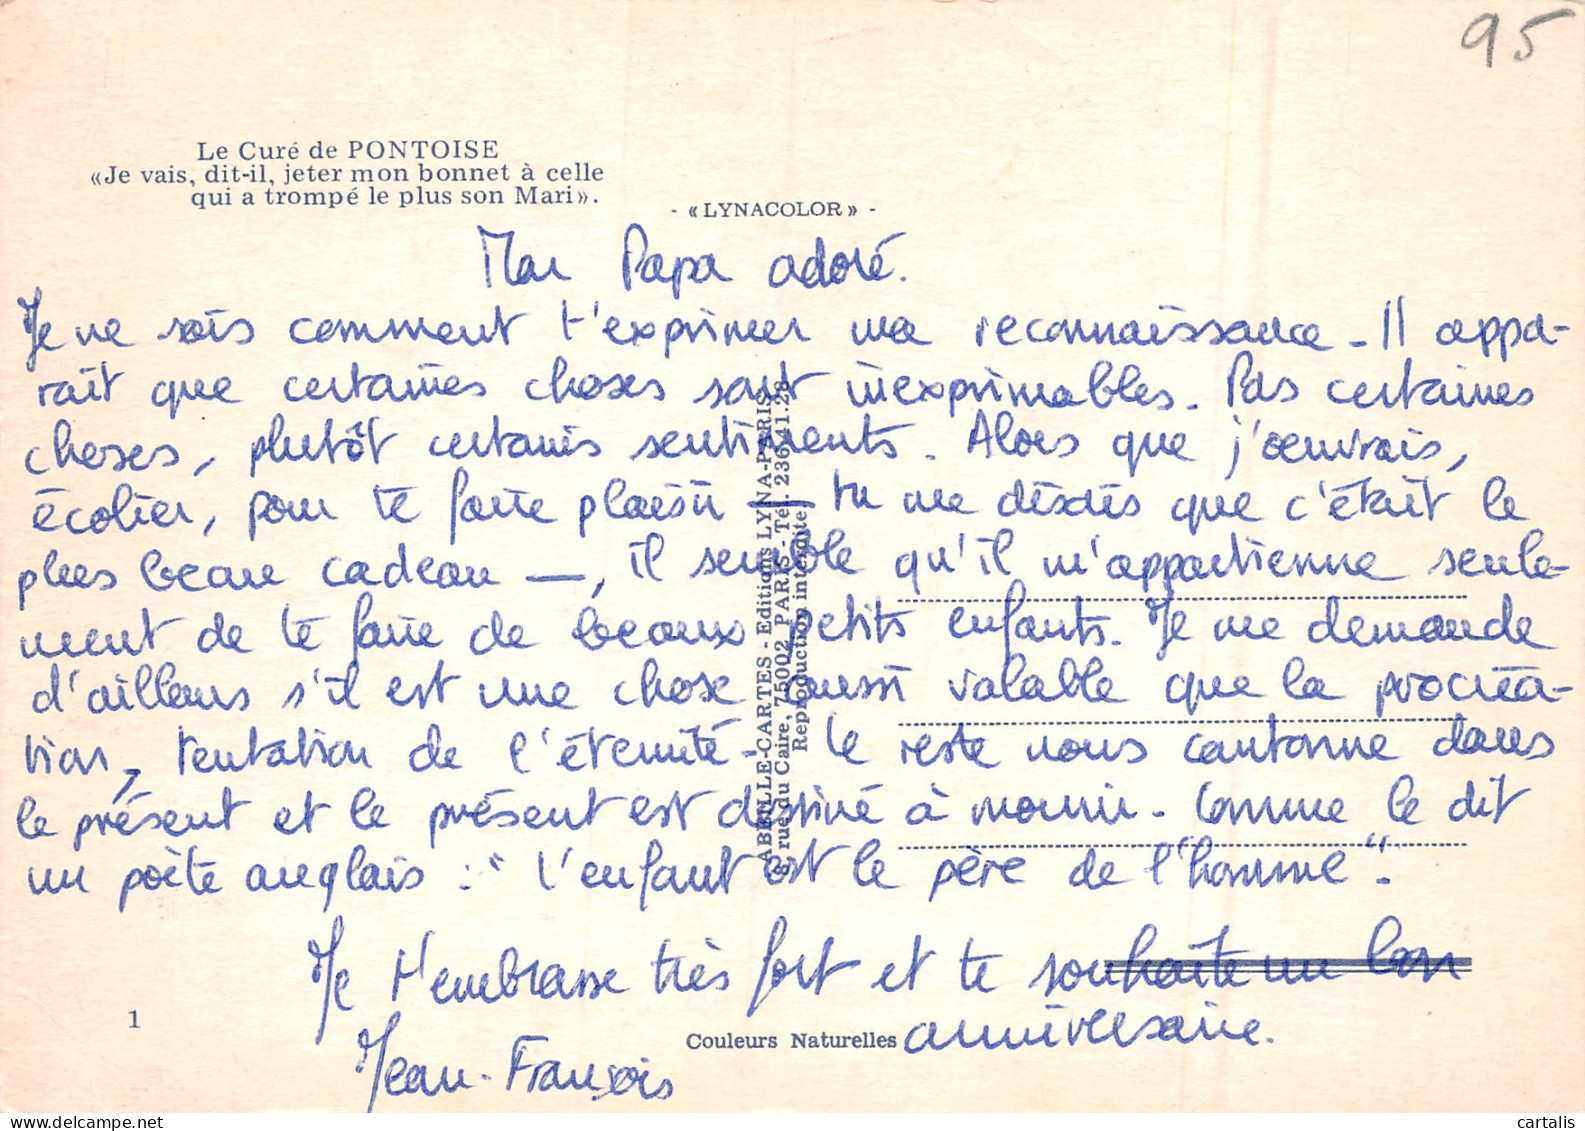 95
Le Curé de PONTOISE
«Je vais, dit-il, jeter mon bonnet à celle
qui a trompé le plus son Mari».
- «LYNACOLOR» -
Mon Papa adoré.
Je ne sais comment t'exprimer ma reconnaissance - Il appa-
raît que certaines choses sont inexprimables. Pas certaines
choses, plutôt certains sentiments. Alors que j'oeuvrais,
écolier, pour te faire plaisir — tu me disais que c'était le
plus beau cadeau —, il semble qu'il m'appartienne seule-
ment de te faire de beaux petits enfants. Je me demande
d'ailleurs s'il est une chose aussi valable que la procréa-
tion, tentation de l'éternité - Le reste nous cantonne dans
le présent et le présent est destiné à mourir - Comme le dit
un poète anglais : "L'enfant est le père de l'homme".
Je t'embrasse très fort et te souhaite un bon
anniversaire.
Jean-François
ABEILLE-CARTES - Editions LYNA-PARIS
8, rue du Caire, 75002 PARIS - Tél. 236.41.28
Reproduction interdite
1
Couleurs Naturelles
delcampe.net
cartalis